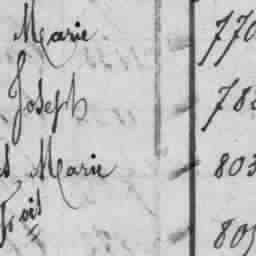 Marie 770
Joseph 78
s Marie 803
fois 80